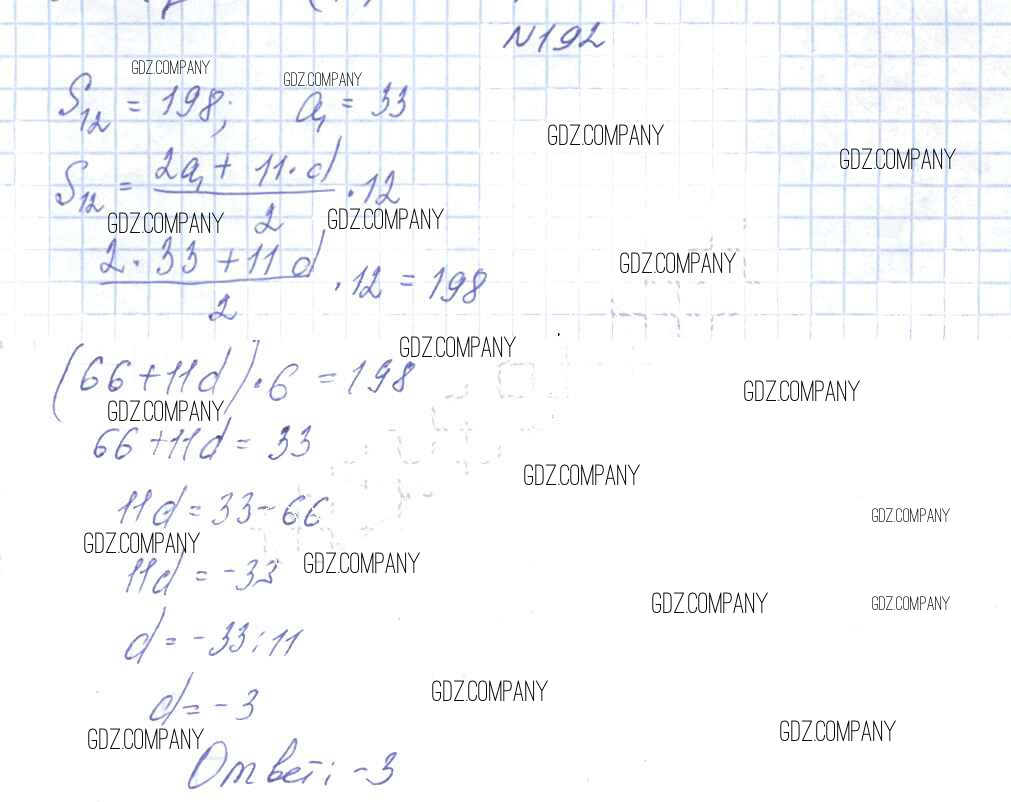 N192
GDZ.COMPANY
GDZ.COMPANY
S₁₂ = 198; a₁ = 33
GDZ.COMPANY
GDZ.COMPANY
S₁₂ = (2a₁ + 11·d)/2 · 12
GDZ.COMPANY
GDZ.COMPANY
(2·33 + 11d)/2 · 12 = 198
GDZ.COMPANY
GDZ.COMPANY
(66 + 11d)·6 = 198
GDZ.COMPANY
GDZ.COMPANY
66 + 11d = 33
GDZ.COMPANY
11d = 33 - 66
GDZ.COMPANY
GDZ.COMPANY
GDZ.COMPANY
11d = -33
GDZ.COMPANY
GDZ.COMPANY
d = -33 : 11
GDZ.COMPANY
d = -3
GDZ.COMPANY
GDZ.COMPANY
Ответ: -3